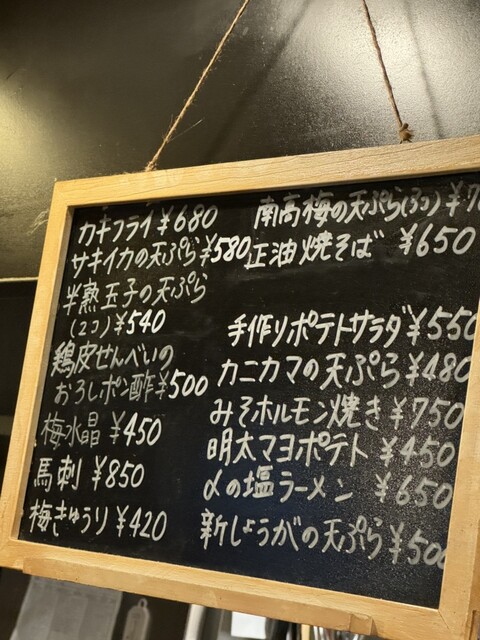 カキフライ ¥680
サキイカの天ぷら ¥580
半熟玉子の天ぷら
(2コ) ¥540
鶏皮せんべいの
おろしポン酢 ¥500
梅水晶 ¥450
馬刺 ¥850
梅きゅうり ¥420
南高梅の天ぷら
正油焼そば ¥650
手作りポテトサラダ ¥550
カニカマの天ぷら ¥480
みそホルモン焼き ¥750
明太マヨポテト ¥450
〆の塩ラーメン ¥650
新しょうがの天ぷら ¥500